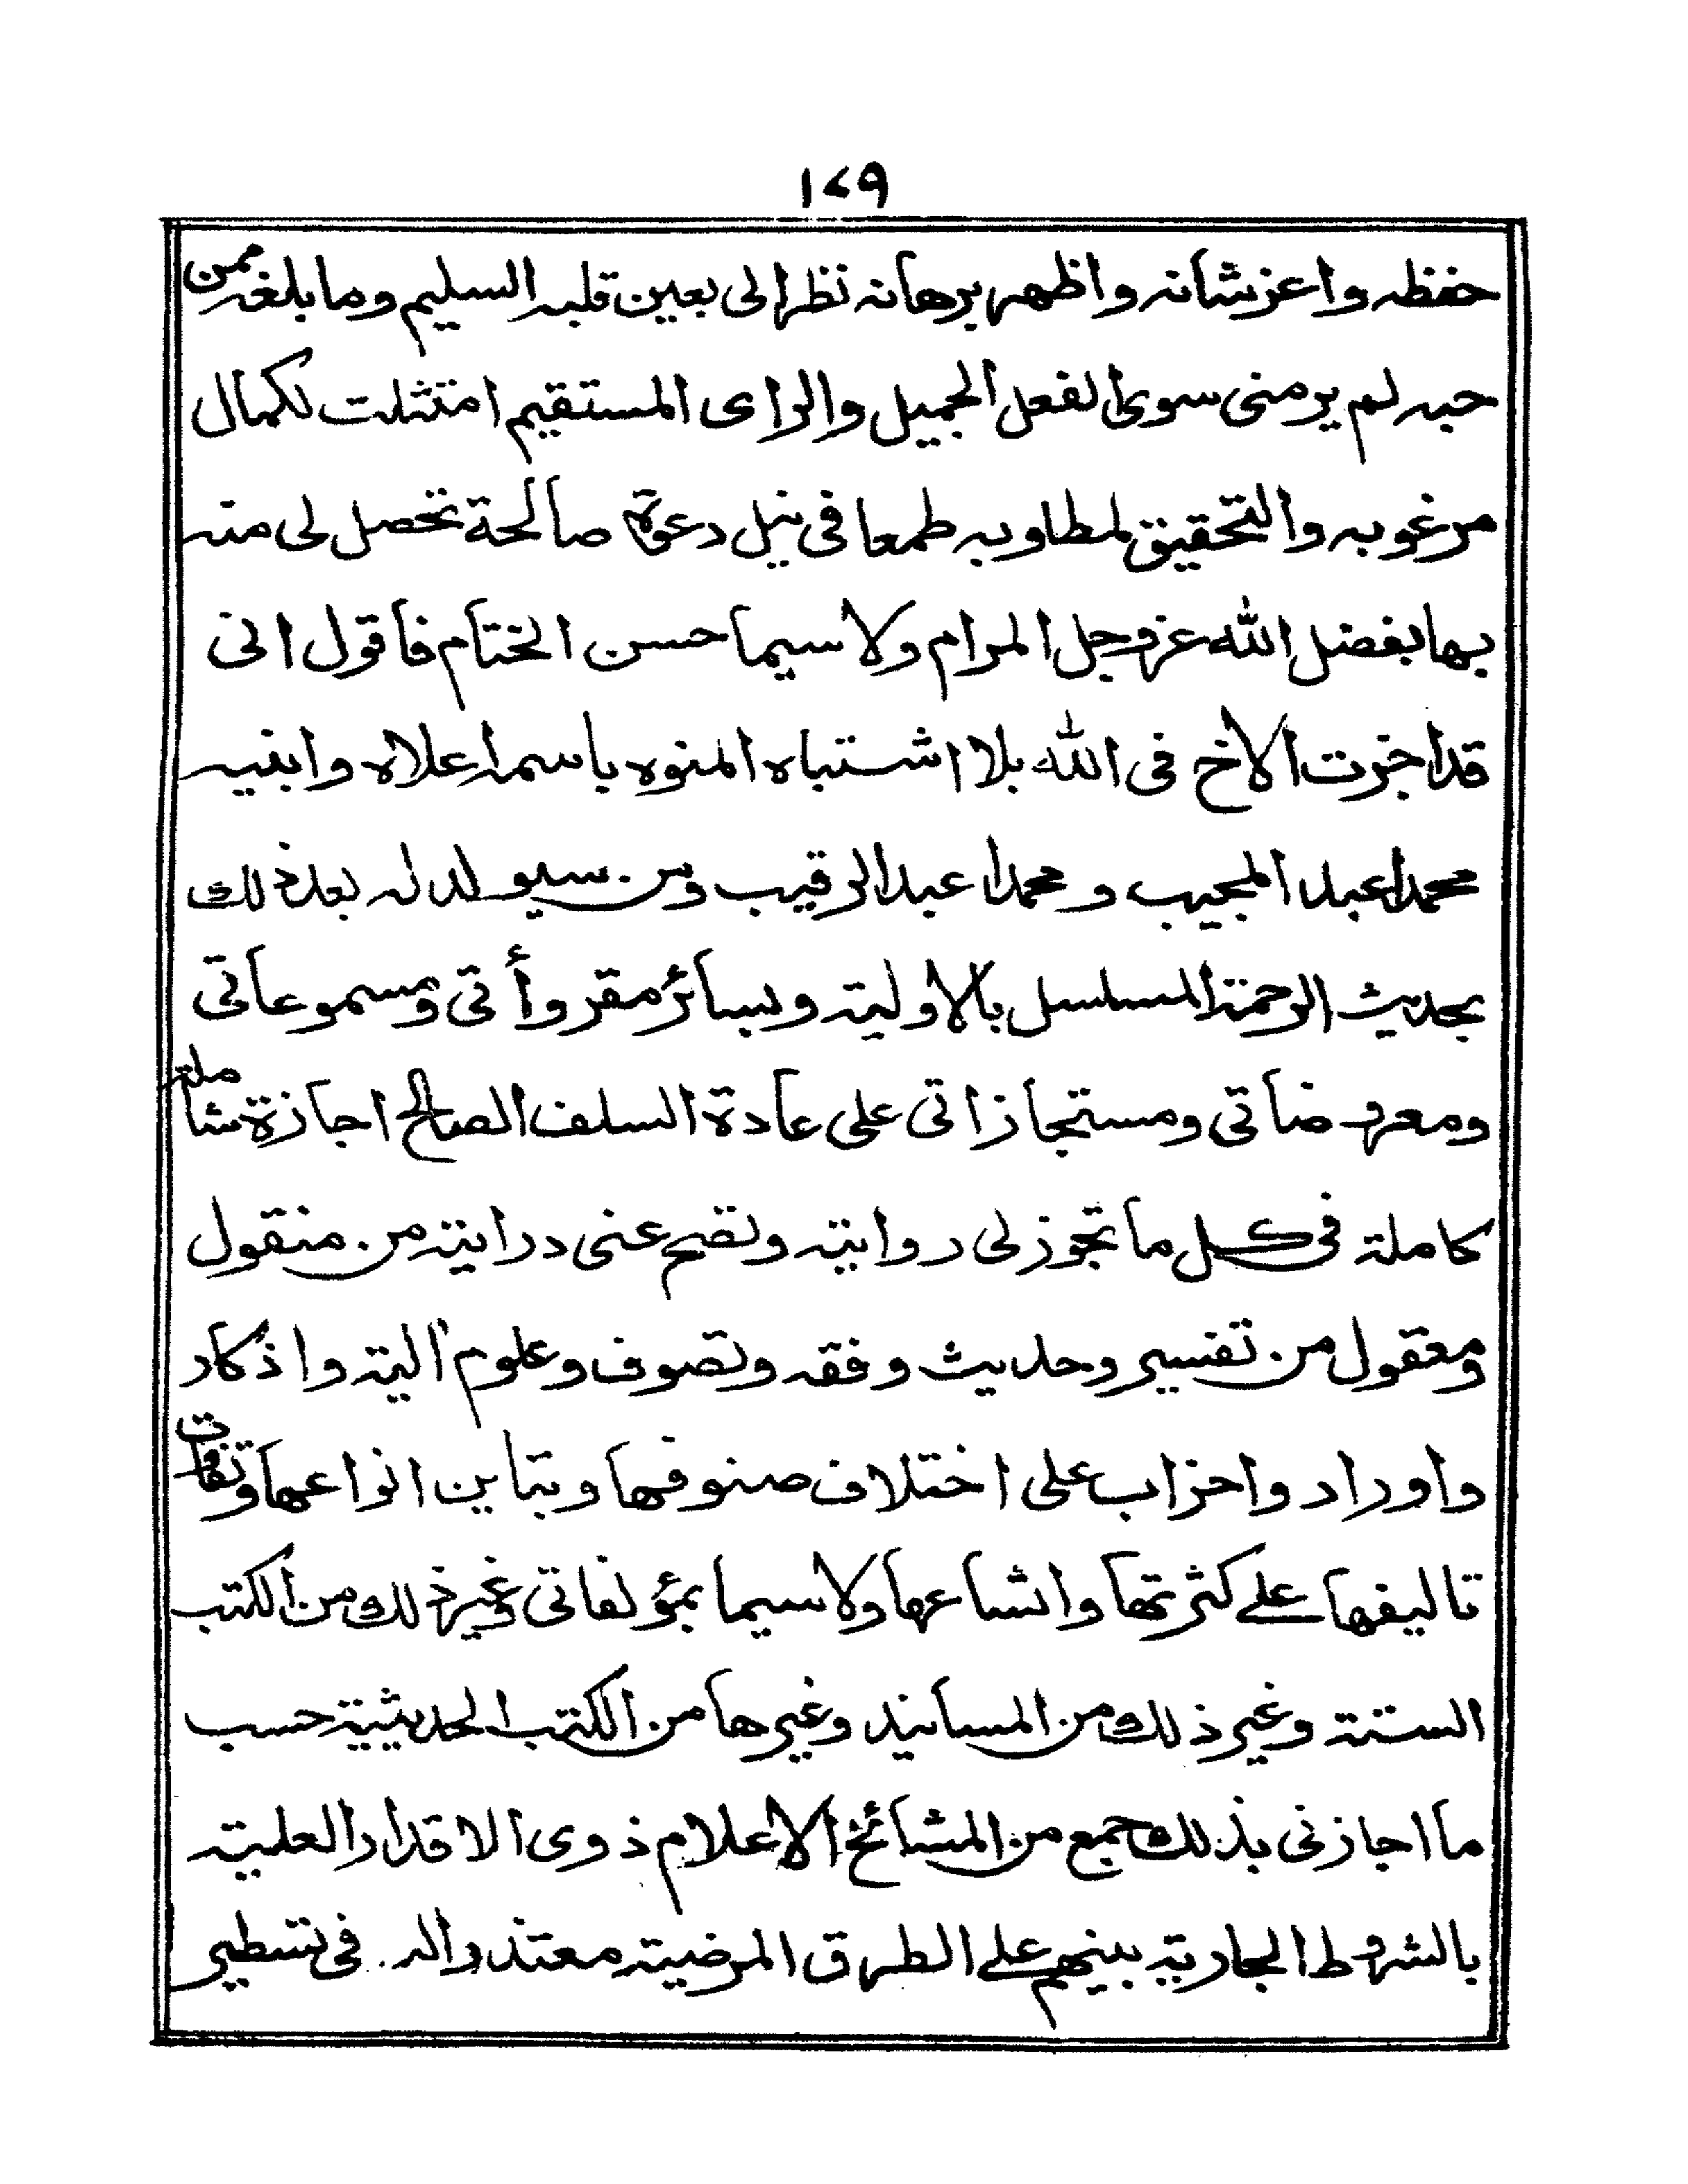 ١٧٩
حفظه واعز شأنه واظهر برهانه نظر الى بعين قلبه السليم وما بلغه ممن
حبه لم ير منى سوى الفعل الجميل والراى المستقيم امتثلت لكمال
مرغوبه والتحقيق لمطلوبه طمعا فى نيل دعوة صالحة تحصل لى منه
بها بفضل الله عز وجل المرام ولا سيما حسن الختام فأقول انى
قد اجزت الاخ فى الله بلا اشتباه المنوه باسمه اعلاه وابنيه
محمدا عبد المجيب و محمدا عبد الرقيب ومن سيولد له بعد ذلك
بحديث الرحمة المسلسل بالاولية وبسائر مقروأتى ومسموعاتى
ومعروضاتى ومستجازاتى على عادة السلف الصالح اجازة شاملة
كاملة فى كل ما تجوز لى روايته وتصح عنى درايته من منقول
ومعقول من تفسير وحديث وفقه وتصوف وعلوم آلية واذكار
واوراد واحزاب على اختلاف صنوفها وتباين انواعها وتفاوت
تاليفها على كثرتها واتساعها ولاسيما بمؤلفاتى وغير ذلك من الكتب
الستة وغير ذلك من المسانيد وغيرها من الكتب الحديثية حسب
ما اجازنى بذلك جمع من المشائخ الاعلام ذوى الاقدار العلية
بالشروط الجارية بينهم على الطرق المرضية معتذرا له فى تسطير